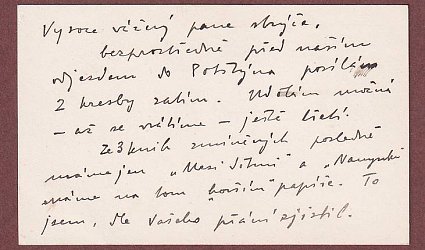 Vysoce vážený pane strýče,
bezprostředně před naším
odjezdem do Potštýna posílám
2 kresby zatím. Udělám možná
– až se vrátíme – ještě třetí.
Ze 3 knih zmíněných posledně
máme jen „Mezi dětmi" a
máme na tom „horším" papíře. To
jsem, dle Vašeho přání zjistil.